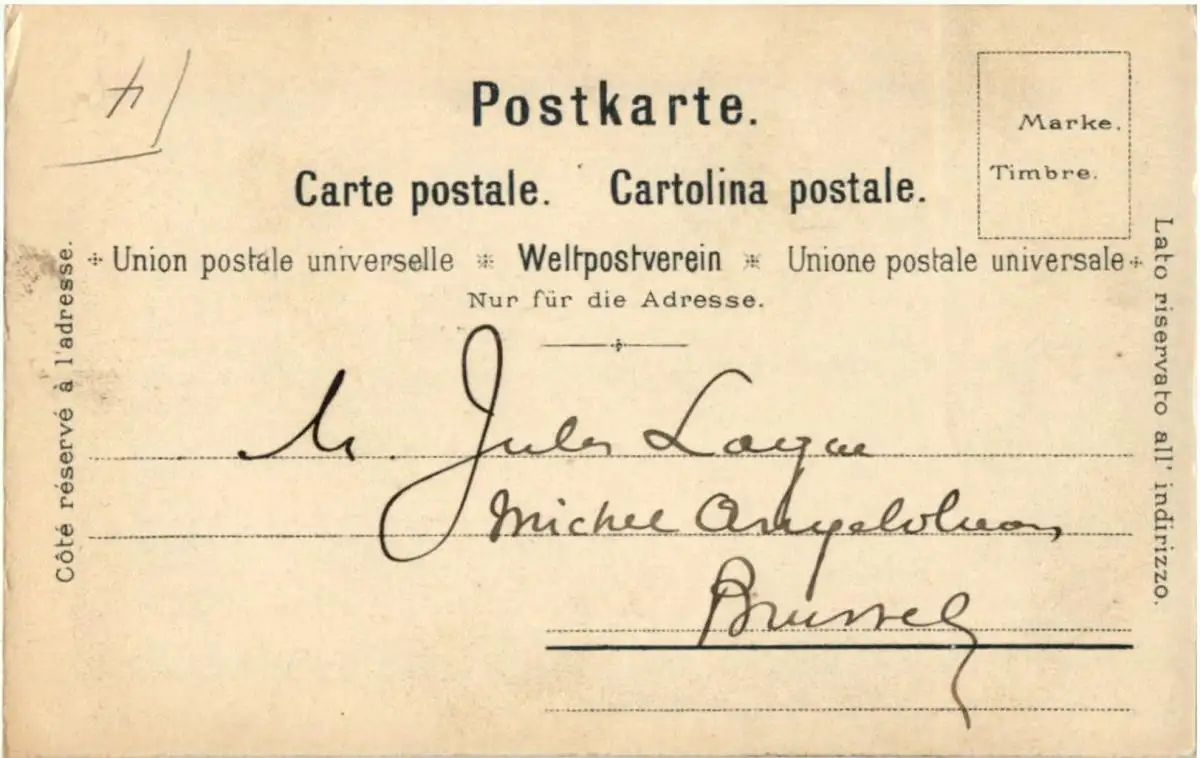 Postkarte.
Marke.
Timbre.
Carte postale. Cartolina postale.
Union postale universelle * Weltpostverein * Unione postale universale
Nur für die Adresse.
Côté réservé à l'adresse.
Lato riservato all' indirizzo.
M. Jules
Michel
Brussel